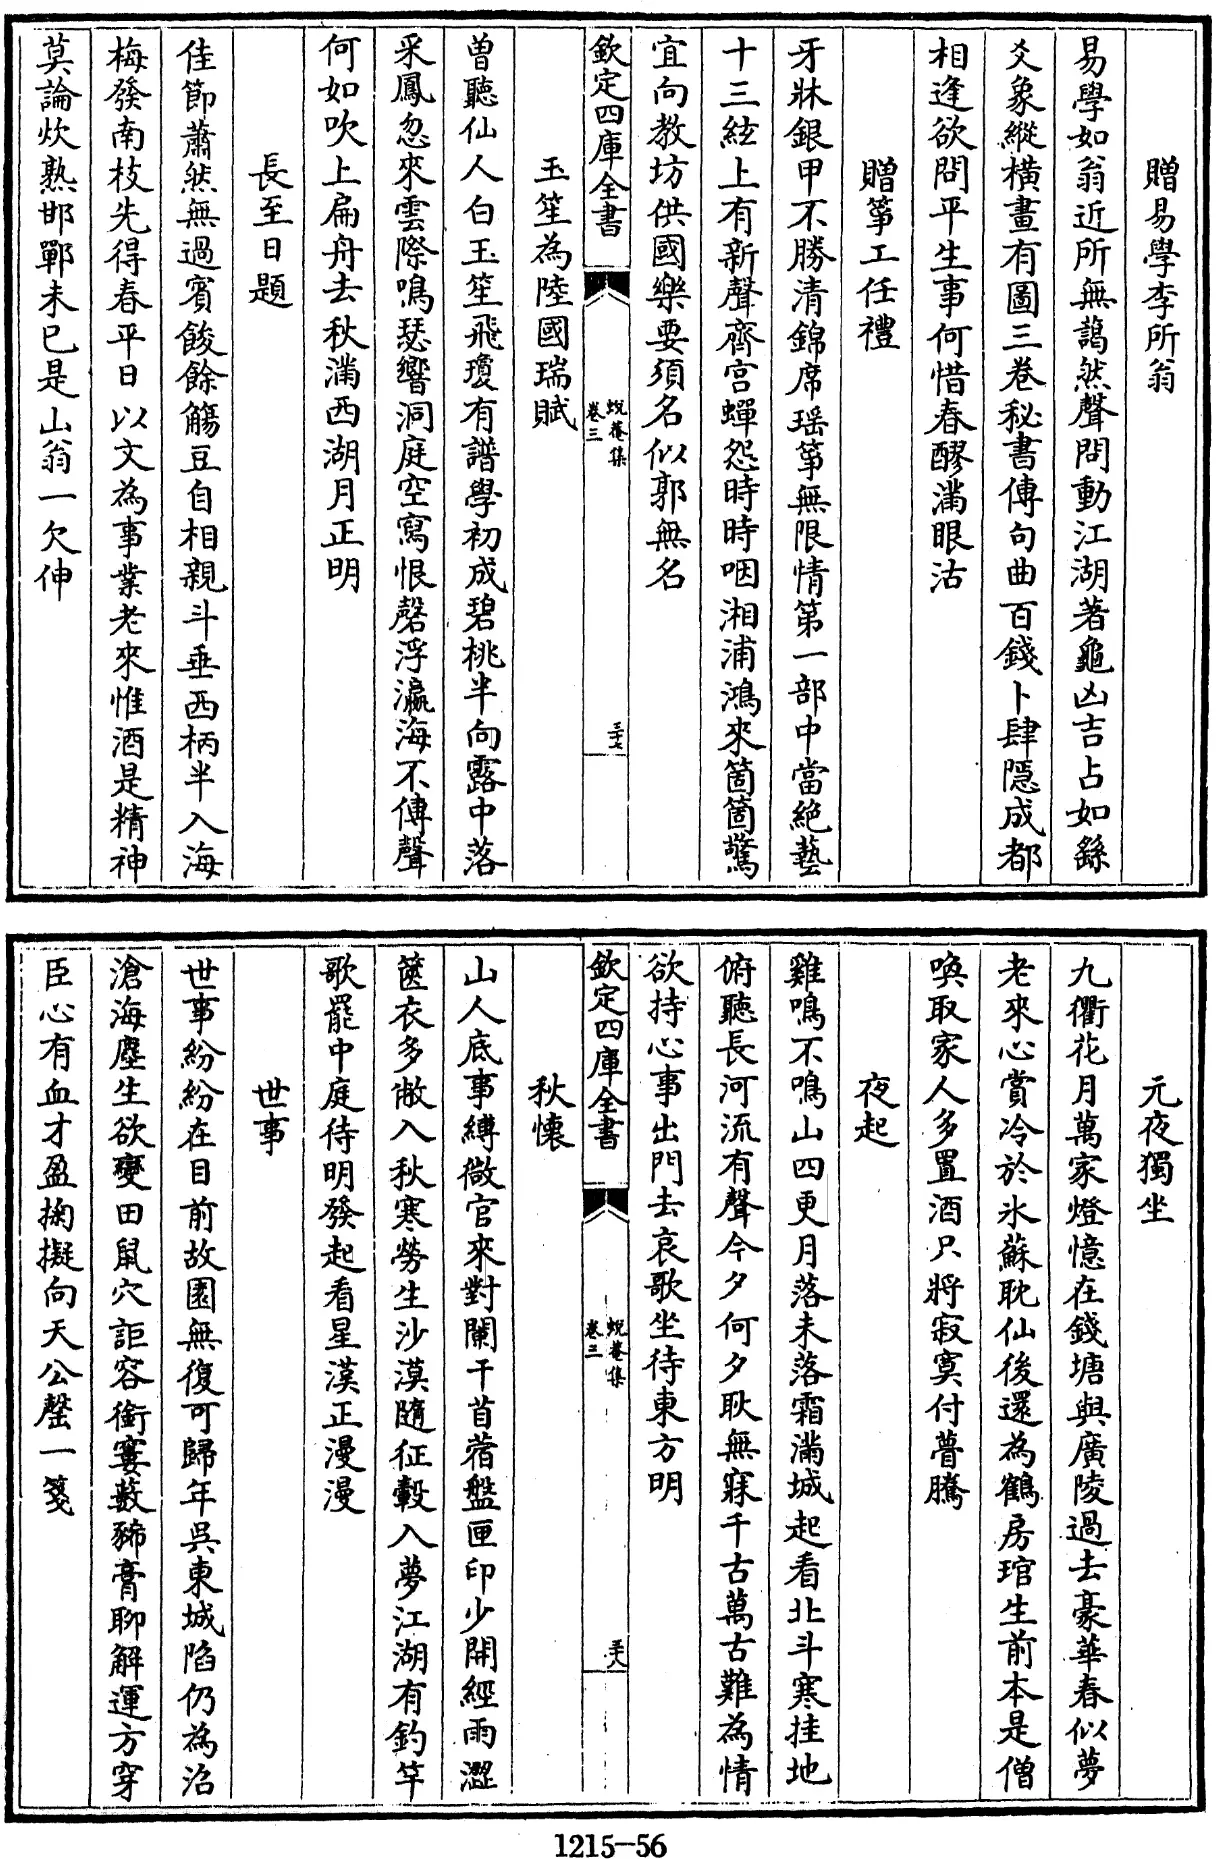 贈易學李所翁
易學如翁近所無藹然聲問動江湖著龜凶吉占如繇
爻象縱橫畫有圖三卷秘書傳句曲百錢卜肆隠成都
相逢欲問平生事何惜春醪滿眼沽
贈箏工任禮
牙牀銀甲不勝清錦席瑶箏無限情第一部中當絶藝
十三絃上有新聲齊宫蟬怨時時咽湘浦鴻來箇箇驚
宜向教坊供國樂要須名似郭無名
欽定四庫全書
蛻菴集
卷三
三十七
玉笙為陸國瑞賦
曽聽仙人白玉笙飛瓊有譜學初成碧桃半向露中落
采鳳忽來雲際鳴瑟響洞庭空寫恨磬浮瀛海不傳聲
何如吹上扁舟去秋滿西湖月正明
長至日題
佳節蕭然無過賓餕餘觴豆自相親斗垂西柄半入海
梅發南枝先得春平日以文為事業老來惟酒是精神
莫論炊熟邯鄲未已是山翁一欠伸
元夜獨坐
九衢花月萬家燈憶在錢塘與廣陵過去豪華春似夢
老來心賞冷於氷蘇耽仙後還為鶴房琯生前本是僧
喚取家人多置酒只將寂寞付瞢騰
夜起
雞鳴不鳴山四更月落未落霜滿城起看北斗寒挂地
俯聽長河流有聲今夕何夕耿無寐千古萬古難為情
欲持心事出門去哀歌坐待東方明
欽定四庫全書
蛻菴集
卷三
三十八
秋懷
山人底事縛微官來對闌干苜蓿盤匣印少開經雨澀
篋衣多敝入秋寒勞生沙漠隨征轂入夢江湖有釣竿
歌罷中庭待明發起看星漢正漫漫
世事
世事紛紛在目前故園無復可歸年吳東城陷仍為沼
滄海塵生欲變田鼠穴詎容銜窶藪豨膏聊解運方穿
臣心有血才盈掬擬向天公罄一箋
1215-56